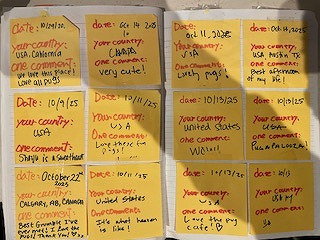 date: 10/29/25
your country:
USA, California
one comment:
We love this place!
Love all pugs
date: Oct 14, 2025
your country:
CANADA
one comment:
Very cute!
date:
Oct 11, 2025
your country:
USA
one comment:
Lovely pugs!
date: Oct 14, 2025
your country:
USA Austin TX
one comment:
Best afternoon
of my life!
Date: 10/9/25
your country:
USA
one comment:
is a sweetheart
Date: 10/11/25
your country:
USA
One comment:
Love these
pugs!
Date: 10/13/25
your country:
United States
One comment:
Wow!
Date: 10/13/25
your country:
one comment:
date: October 22nd
2025
your country:
CALGARY, AB, CANADA
one comment:
Best Grumble I've
ever met! I love the
pugs! Thank you!
Date: 10/11/25
your country:
United States
one comment:
It's what heaven
is like!
10/13/25
your country:
USA
one comment:
Love the pug
cafe!
date: 10/13
your country:
USA
one comment: